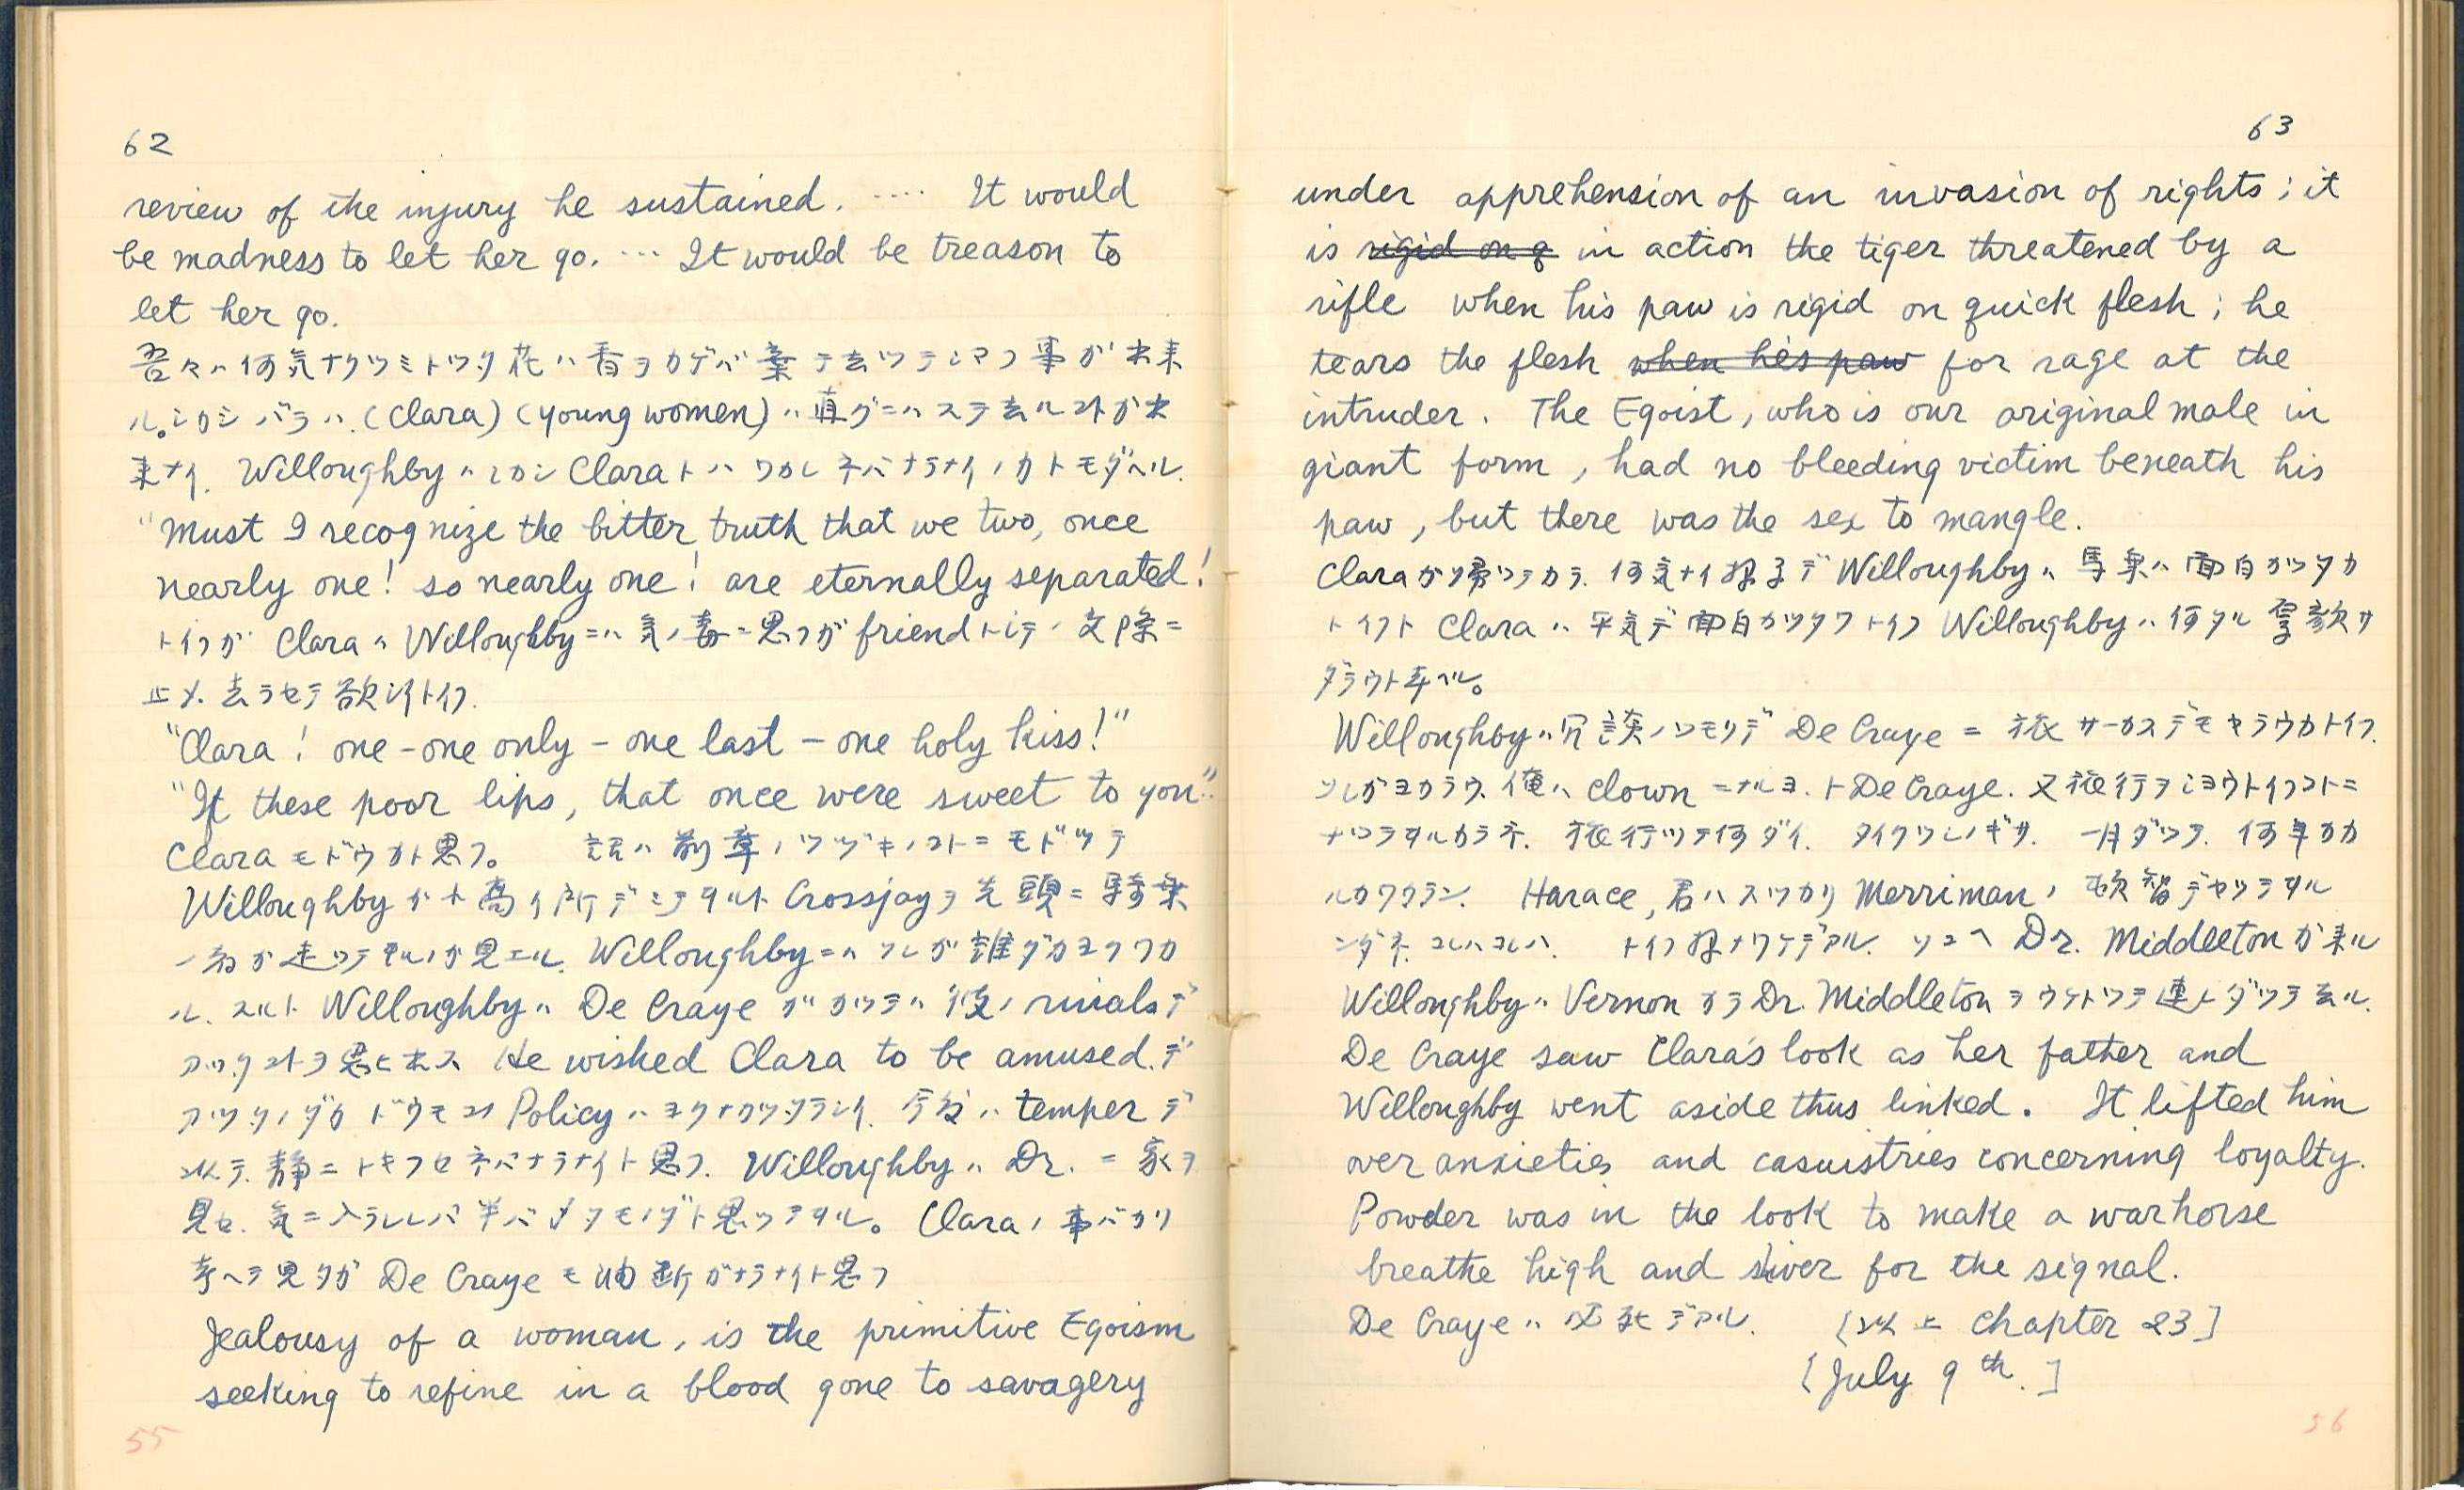 62
review of the injury he sustained. .... It would
be madness to let her go. ... It would be treason to
let her go.
吾々ハ何気ナクツミトッタ花ハ香ヲカゲバ棄テ去ッテシマフ事が出来
ル。シカシバラハ.(Clara)(young women)ハ直グニハステ去ルコトが出
来ナイ. WilloughbyハシカシClaraトハワカレネバナラナイノカトモダヘル.
"Must I recognize the bitter truth that we two, once
nearly one! so nearly one! are eternally separated!
トイフガ ClaraハWilloughbyニハ気ノ毒ニ思フガfriendトシテノ交際ニ
止メ.去ラセテ欲シイトイフ.
"Clara! one - one only - one last - one holy kiss!"
"If these poor lips, that once were sweet to you.."
Claraモドウカト思フ。 話ハ前章ノツヅキノコトニモドッテ
Willoughbyガ高イ所デミテヰルト Crossjayヲ先頭ニ騎乗
ノ者が走ッテヰルノが見エル. Willoughbyニハソレが誰ダカヨクワカ
ル.スルト WilloughbyハDe Crayeガカツテハ彼ノrivalsデ
アッタコトヲ思ヒ出ス He wished Clara to be amused.デ
アッタノダガ ドウモコノPolicyハヨクナカッタラシイ. 今後ハtemperデ
以テ.静ニトキフセネバナラナイト思フ. WilloughbyハDr.ニ家ヲ
見セ.気ニ入ラレレバ半バシメタモノダト思ッテヰル。Claraノ事バカリ
考ヘテ見タガ De Crayeモ油断ガナラナイト思フ
Jealousy of a woman, is the primitive Egoism
seeking to refine in a blood gone to savagery
55
63
under apprehension of an invasion of rights; it
is rigid on q in action the tiger threatened by a
rifle when his paw is rigid on quick flesh; he
tears the flesh when he's paw for rage at the
intruder. The Egoist, who is our original male in
giant form, had no bleeding victim beneath his
paw, but there was the sex to mangle.
Claraガ帰ッテカラ.何気ナイ様子デWilloughbyハ馬乗ハ面白カッタカ
トイフト Claraハ平気デ面白カッタワトイフ Willoughbyハ何タル厚顔サ
ダラウト考ヘル。
Willoughbyハ冗談ノツモリデ De Crayeニ旅サーカスデモヤラウカトイフ.
ソレガヨカラウ.俺ハclownニナルヨ.トDe Craye.又旅行ヲシヨウトイフコトニ
ナッテヰルカラネ.旅行ッテ何ダイ.タイクツシノギサ.一月ダッテ.何年カカ
ルカワカラン. Harace,君ハスッカリMerrimanノ頓智デヤッテヰル
ンダネ.コレハコレハ. トイフ様ナワケデアル. ソコヘDr. Middletonが来ル
WilloughbyハVernonカラDr. Middletonヲウケトッテ連レダッテ去ル.
De Craye saw Clara's look as her father and
Willoughby went aside thus linked. It lifted him
over anxieties and casuistries concerning loyalty.
Powder was in the look to make a warhorse
breathe high and shiver for the signal.
De Crayeハ必死デアル. [以上 Chapter 23]
[July 9th.]
56